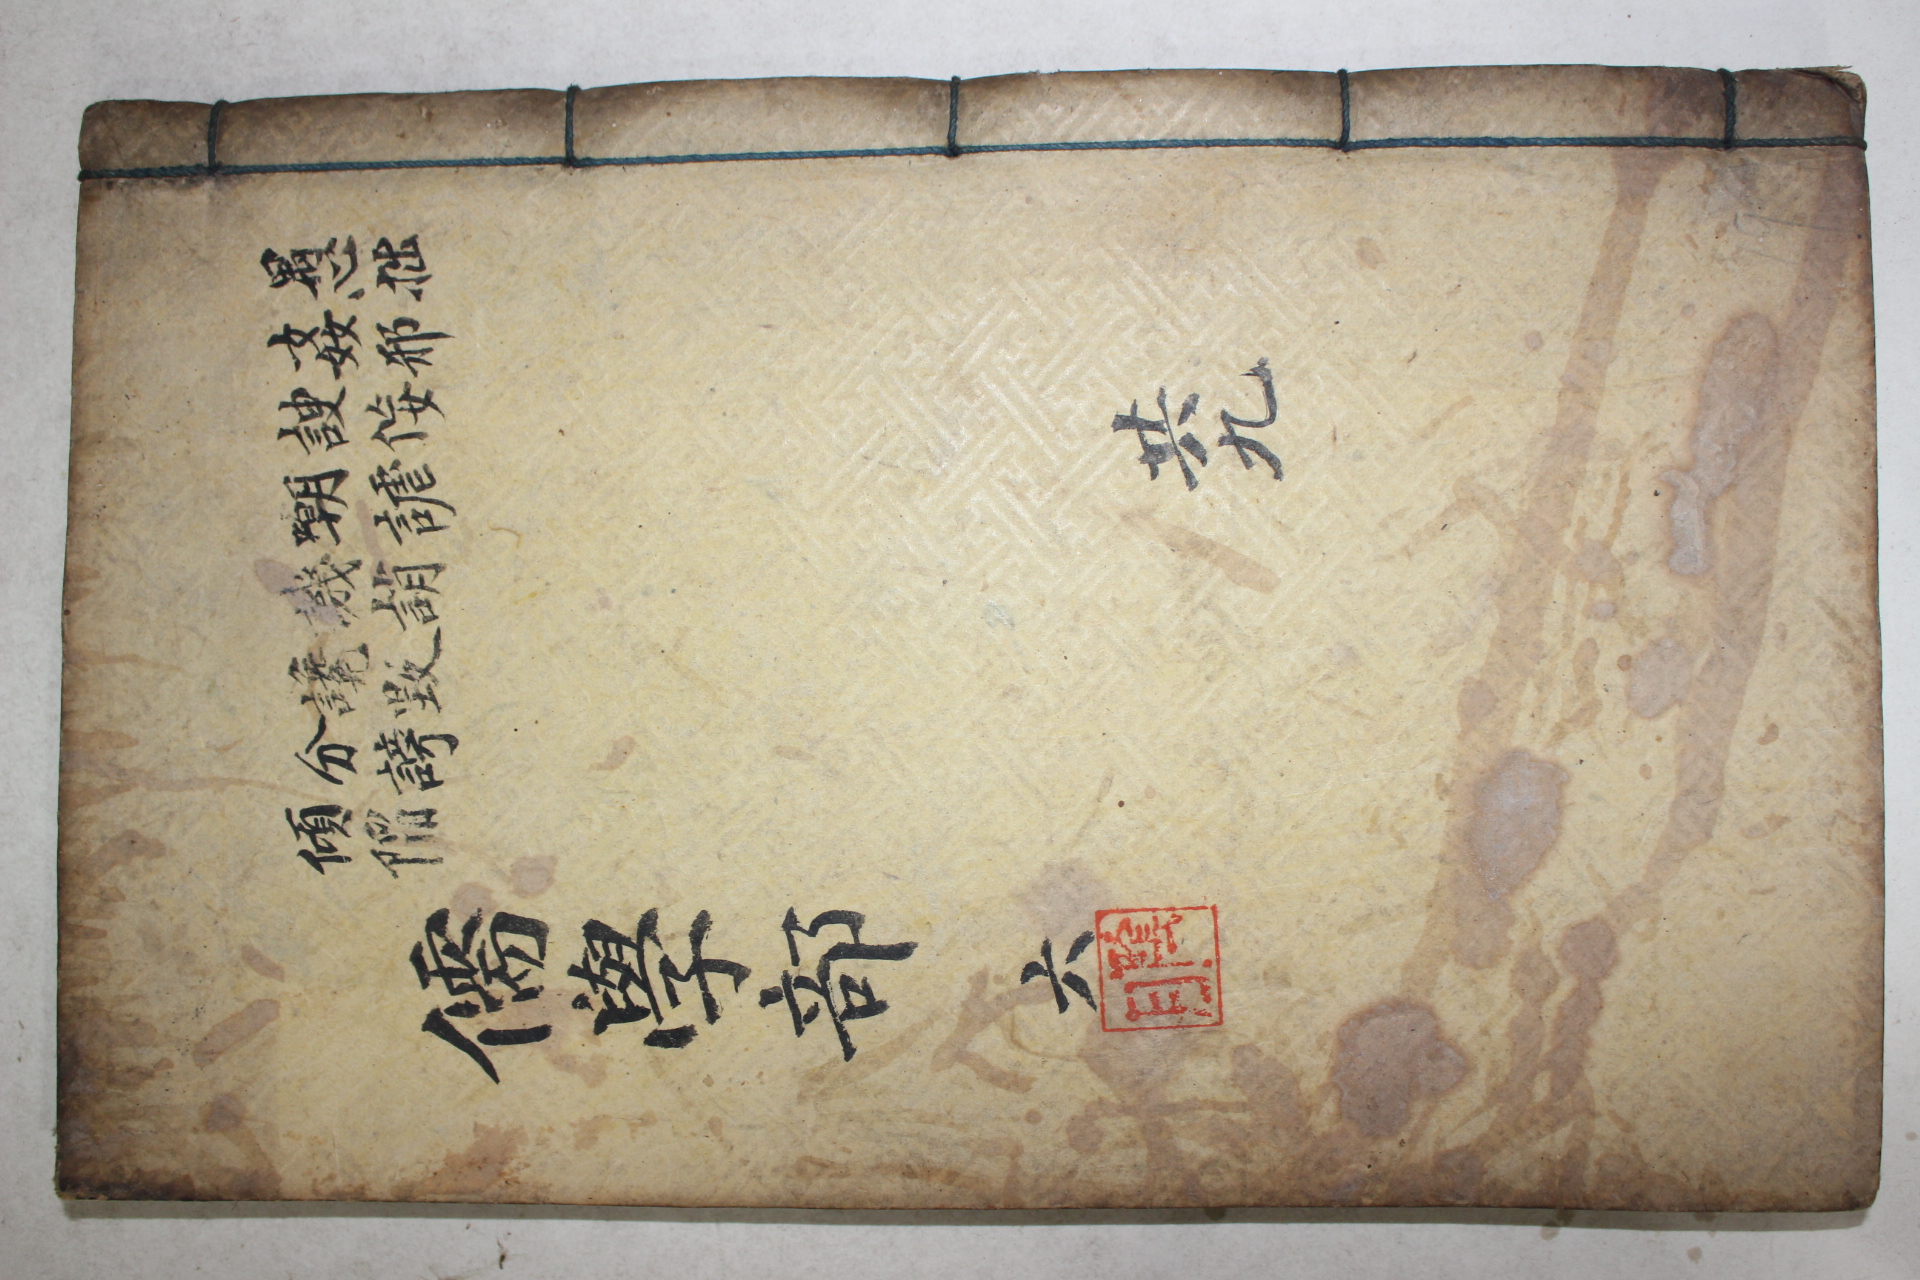 愚拙
姦邪
諛侮
嘲謔
譏誚
讒毀
分謗
傾陷
儒學部 六
共九